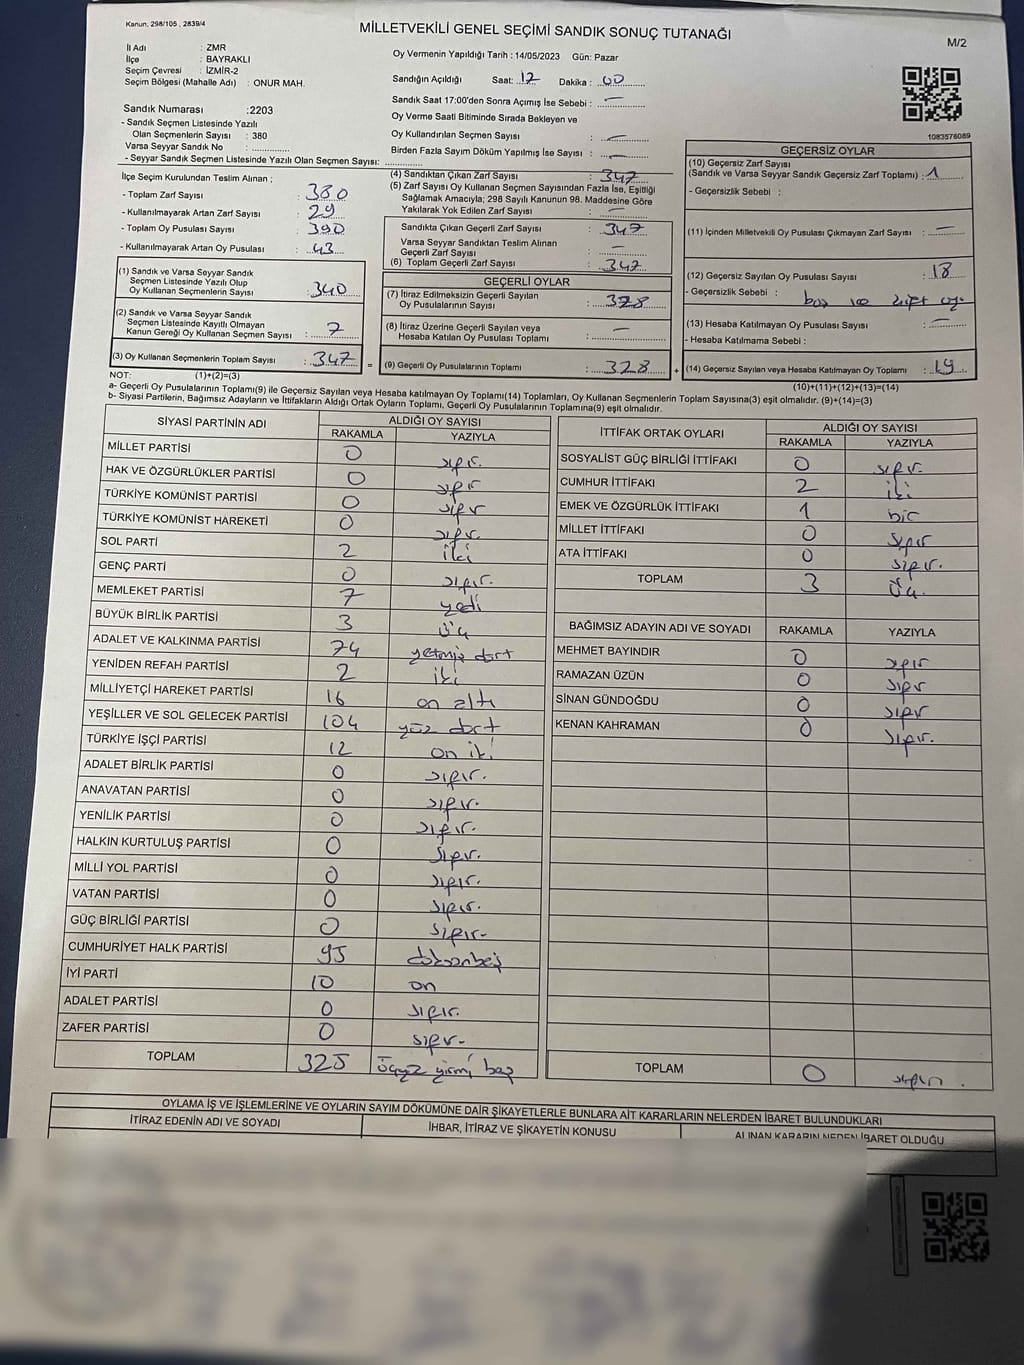 Kanun, 298/105 , 2839/4
MİLLETVEKİLİ GENEL SEÇİMİ SANDIK SONUÇ TUTANAĞI
M/2
İl Adı : ZMR
İlçe : BAYRAKLI
Seçim Çevresi : İZMİR-2
Seçim Bölgesi (Mahalle Adı) : ONUR MAH.
Sandık Numarası :2203
- Sandık Seçmen Listesinde Yazılı
Olan Seçmenlerin Sayısı : 380
Varsa Seyyar Sandık No :
- Seyyar Sandık Seçmen Listesinde Yazılı Olan Seçmen Sayısı:
Oy Vermenin Yapıldığı Tarih : 14/05/2023 Gün: Pazar
Sandığın Açıldığı Saat: 17 Dakika : 00
Sandık Saat 17:00'den Sonra Açımış İse Sebebi : —
Oy Verme Saati Bitiminde Sırada Bekleyen ve
Oy Kullandırılan Seçmen Sayısı : —
Birden Fazla Sayım Döküm Yapılmış İse Sayısı : —
1083576089
İlçe Seçim Kurulundan Teslim Alınan ;
- Toplam Zarf Sayısı : 380
- Kullanılmayarak Artan Zarf Sayısı : 29
- Toplam Oy Pusulası Sayısı : 390
- Kullanılmayarak Artan Oy Pusulası : 43
(1) Sandık ve Varsa Seyyar Sandık
Seçmen Listesinde Yazılı Olup
Oy Kullanan Seçmenlerin Sayısı : 340
(2) Sandık ve Varsa Seyyar Sandık
Seçmen Listesinde Kayıtlı Olmayan
Kanun Gereği Oy Kullanan Seçmen Sayısı : 7
(3) Oy Kullanan Seçmenlerin Toplam Sayısı : 347 =
(4) Sandıktan Çıkan Zarf Sayısı : 347
(5) Zarf Sayısı Oy Kullanan Seçmen Sayısından Fazla İse, Eşitliği
Sağlamak Amacıyla; 298 Sayılı Kanunun 98. Maddesine Göre
Yakılarak Yok Edilen Zarf Sayısı : —
Sandıkta Çıkan Geçerli Zarf Sayısı : 347
Varsa Seyyar Sandıktan Teslim Alınan
Geçerli Zarf Sayısı : —
(6) Toplam Geçerli Zarf Sayısı : 347
GEÇERLİ OYLAR
(7) İtiraz Edilmeksizin Geçerli Sayılan
Oy Pusulalarının Sayısı : 328
(8) İtiraz Üzerine Geçerli Sayılan veya
Hesaba Katılan Oy Pusulası Toplamı : —
(9) Geçerli Oy Pusulalarının Toplamı : 328 +
GEÇERSİZ OYLAR
(10) Geçersiz Zarf Sayısı
(Sandık ve Varsa Seyyar Sandık Geçersiz Zarf Toplamı) : 1
- Geçersizlik Sebebi :
(11) İçinden Milletvekili Oy Pusulası Çıkmayan Zarf Sayısı : —
(12) Geçersiz Sayılan Oy Pusulası Sayısı : 18
- Geçersizlik Sebebi : boş ve çift oy
(13) Hesaba Katılmayan Oy Pusulası Sayısı : —
- Hesaba Katılmama Sebebi :
(14) Geçersiz Sayılan veya Hesaba Katılmayan Oy Toplamı : 19
NOT: (1)+(2)=(3)
(10)+(11)+(12)+(13)=(14)
a- Geçerli Oy Pusulalarının Toplamı(9) ile Geçersiz Sayılan veya Hesaba katılmayan Oy Toplamı(14) Toplamları, Oy Kullanan Seçmenlerin Toplam Sayısına(3) eşit olmalıdır. (9)+(14)=(3)
b- Siyasi Partilerin, Bağımsız Adayların ve İttifakların Aldığı Ortak Oyların Toplamı, Geçerli Oy Pusulalarının Toplamına(9) eşit olmalıdır.
SİYASİ PARTİNİN ADI ALDIĞI OY SAYISI
RAKAMLA YAZIYLA
MİLLET PARTİSİ 0 sıfır.
HAK VE ÖZGÜRLÜKLER PARTİSİ 0 sıfır
TÜRKİYE KOMÜNİST PARTİSİ 0 sıfır
TÜRKİYE KOMÜNİST HAREKETİ 0 sıfır.
SOL PARTİ 2 iki
GENÇ PARTİ 0 sıfır.
MEMLEKET PARTİSİ 7 yedi
BÜYÜK BİRLİK PARTİSİ 3 üç
ADALET VE KALKINMA PARTİSİ 74 yetmiş dört
YENİDEN REFAH PARTİSİ 2 iki
MİLLİYETÇİ HAREKET PARTİSİ 16 on altı
YEŞİLLER VE SOL GELECEK PARTİSİ 104 yüz dört
TÜRKİYE İŞÇİ PARTİSİ 12 on iki
ADALET BİRLİK PARTİSİ 0 sıfır.
ANAVATAN PARTİSİ 0 sıfır.
YENİLİK PARTİSİ 0 sıfır.
HALKIN KURTULUŞ PARTİSİ 0 sıfır.
MİLLİ YOL PARTİSİ 0 sıfır.
VATAN PARTİSİ 0 sıfır.
GÜÇ BİRLİĞİ PARTİSİ 0 sıfır.
CUMHURİYET HALK PARTİSİ 95 doksanbeş
İYİ PARTİ 10 on
ADALET PARTİSİ 0 sıfır.
ZAFER PARTİSİ 0 sıfır.
TOPLAM 325 üçyüz yirmi beş
İTTİFAK ORTAK OYLARI ALDIĞI OY SAYISI
RAKAMLA YAZIYLA
SOSYALİST GÜÇ BİRLİĞİ İTTİFAKI 0 sıfır.
CUMHUR İTTİFAKI 2 iki
EMEK VE ÖZGÜRLÜK İTTİFAKI 1 bir
MİLLET İTTİFAKI 0 sıfır
ATA İTTİFAKI 0 sıfır.
TOPLAM 3 üç.
BAĞIMSIZ ADAYIN ADI VE SOYADI RAKAMLA YAZIYLA
MEHMET BAYINDIR 0 sıfır
RAMAZAN ÜZÜN 0 sıfır
SİNAN GÜNDOĞDU 0 sıfır
KENAN KAHRAMAN 0 sıfır.
TOPLAM 0 sıfır.
OYLAMA İŞ VE İŞLEMLERİNE VE OYLARIN SAYIM DÖKÜMÜNE DAİR ŞİKAYETLERLE BUNLARA AİT KARARLARIN NELERDEN İBARET BULUNDUKLARI
İTİRAZ EDENİN ADI VE SOYADI İHBAR, İTİRAZ VE ŞİKAYETİN KONUSU ALINAN KARARIN NEDEN İBARET OLDUĞU